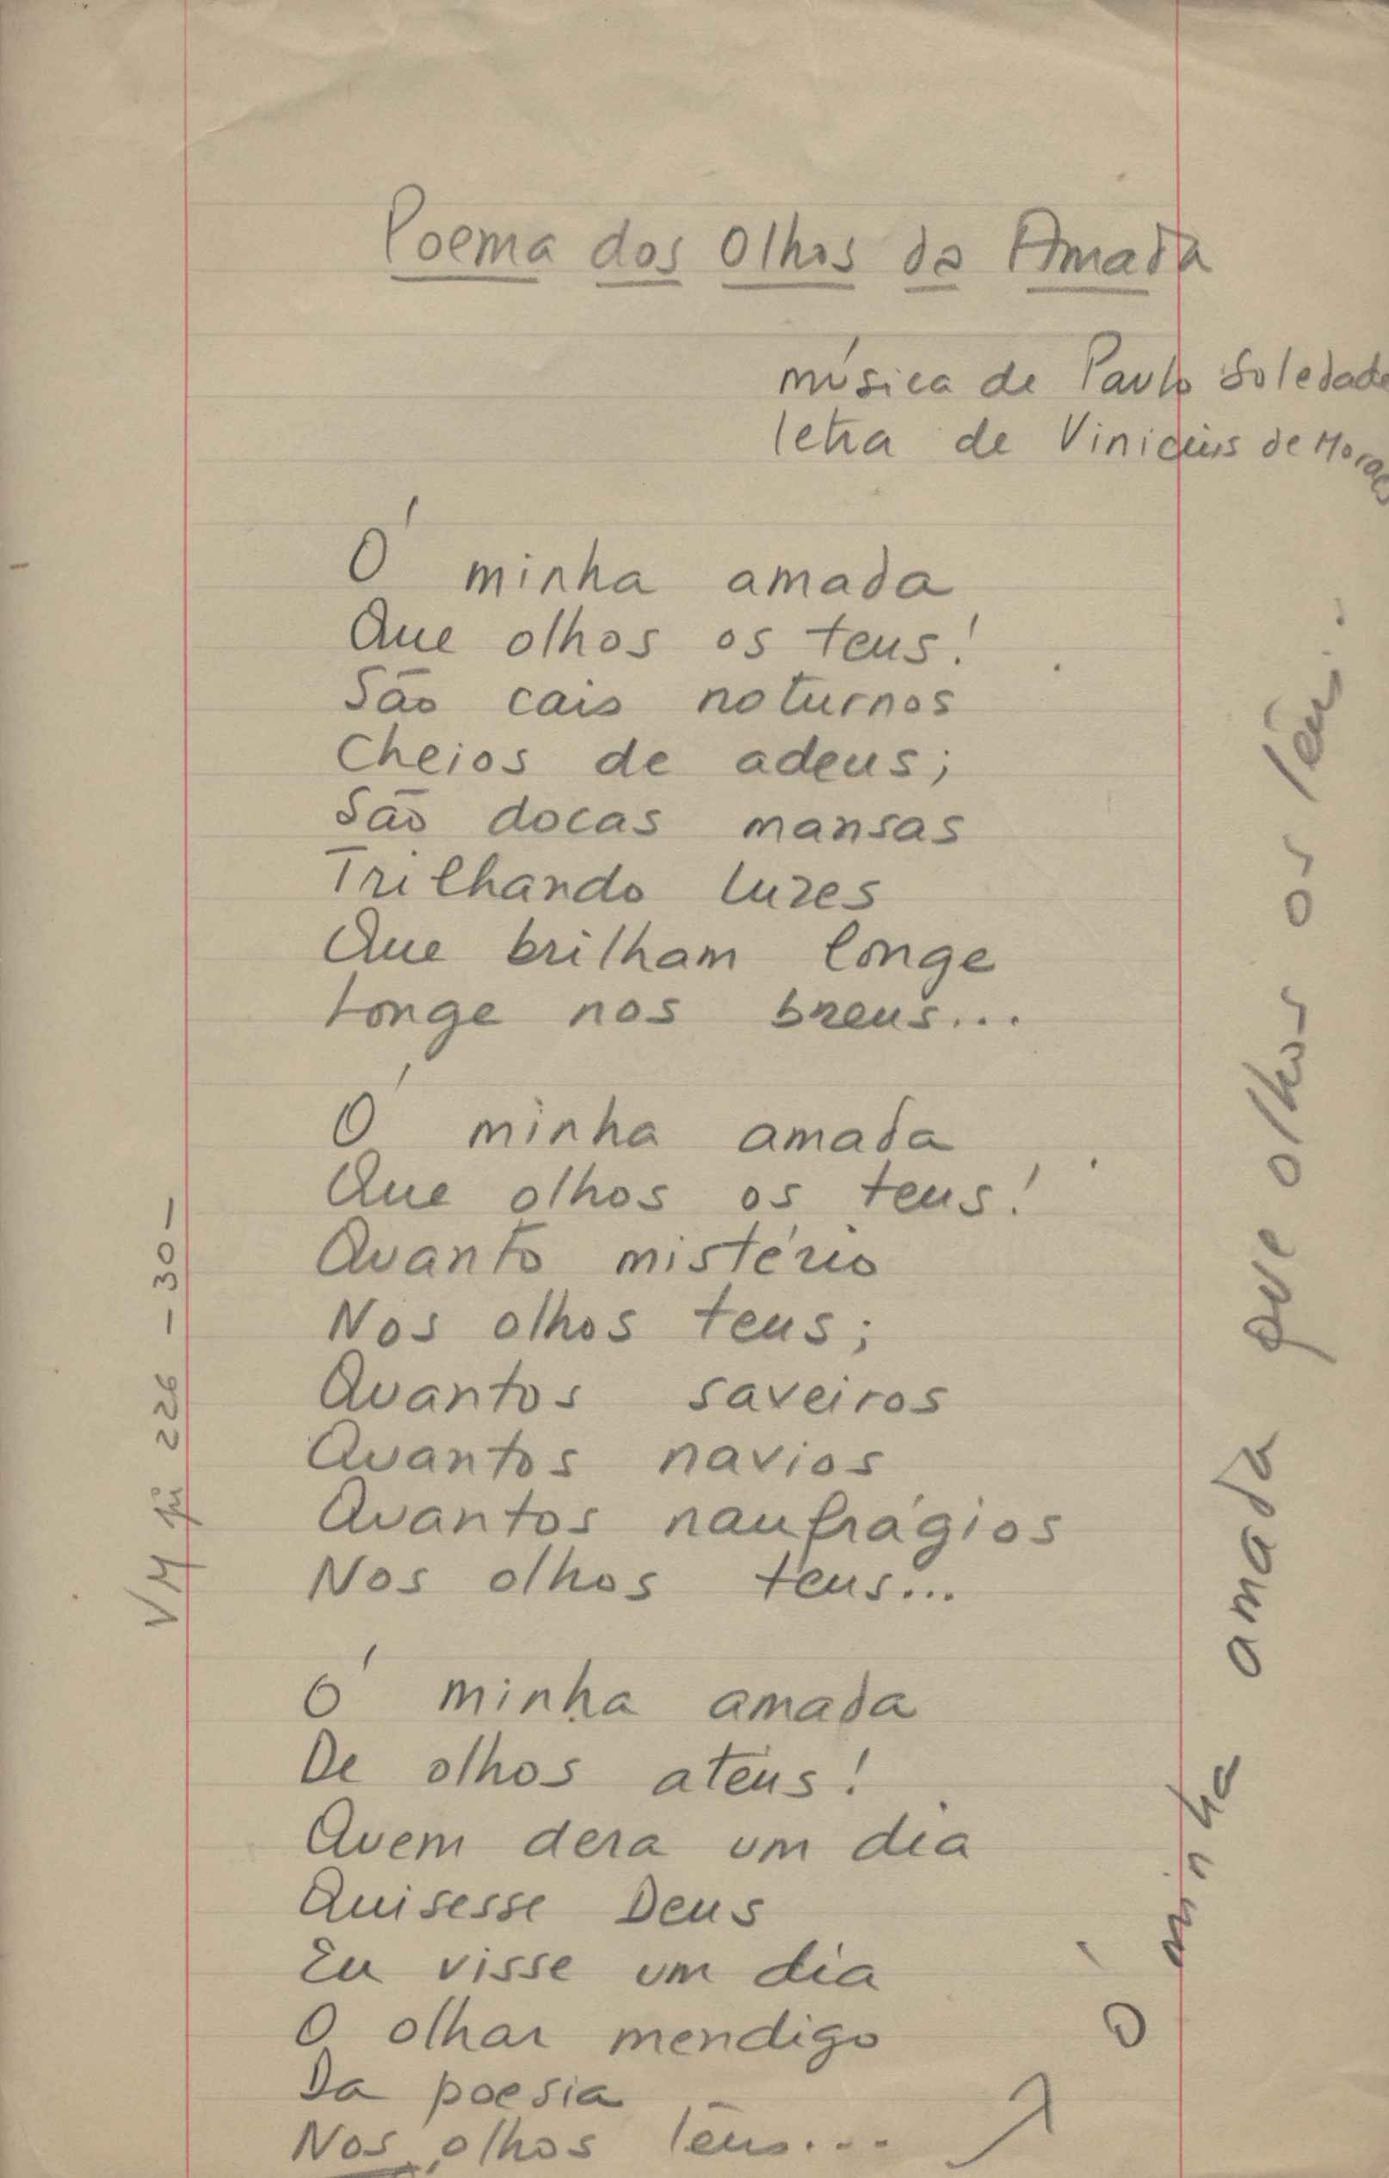 Poema dos Olhos da Amada
música de Paulo Soledade
letra de Vinicius de Moraes
Ó minha amada
Que olhos os teus!
São cais noturnos
Cheios de adeus;
São docas mansas
Trilhando luzes
Que brilham longe
Longe nos breus...
Ó minha amada
Que olhos os teus!
Quanto mistério
Nos olhos teus;
Quantos saveiros
Quantos navios
Quantos naufrágios
Nos olhos teus...
Ó minha amada
De olhos ateus!
Quem dera um dia
Quisesse Deus
Eu visse um dia
O olhar mendigo
Da poesia
Nos olhos teus...
Ó minha amada que olhos os teus.
VM 226 -30-